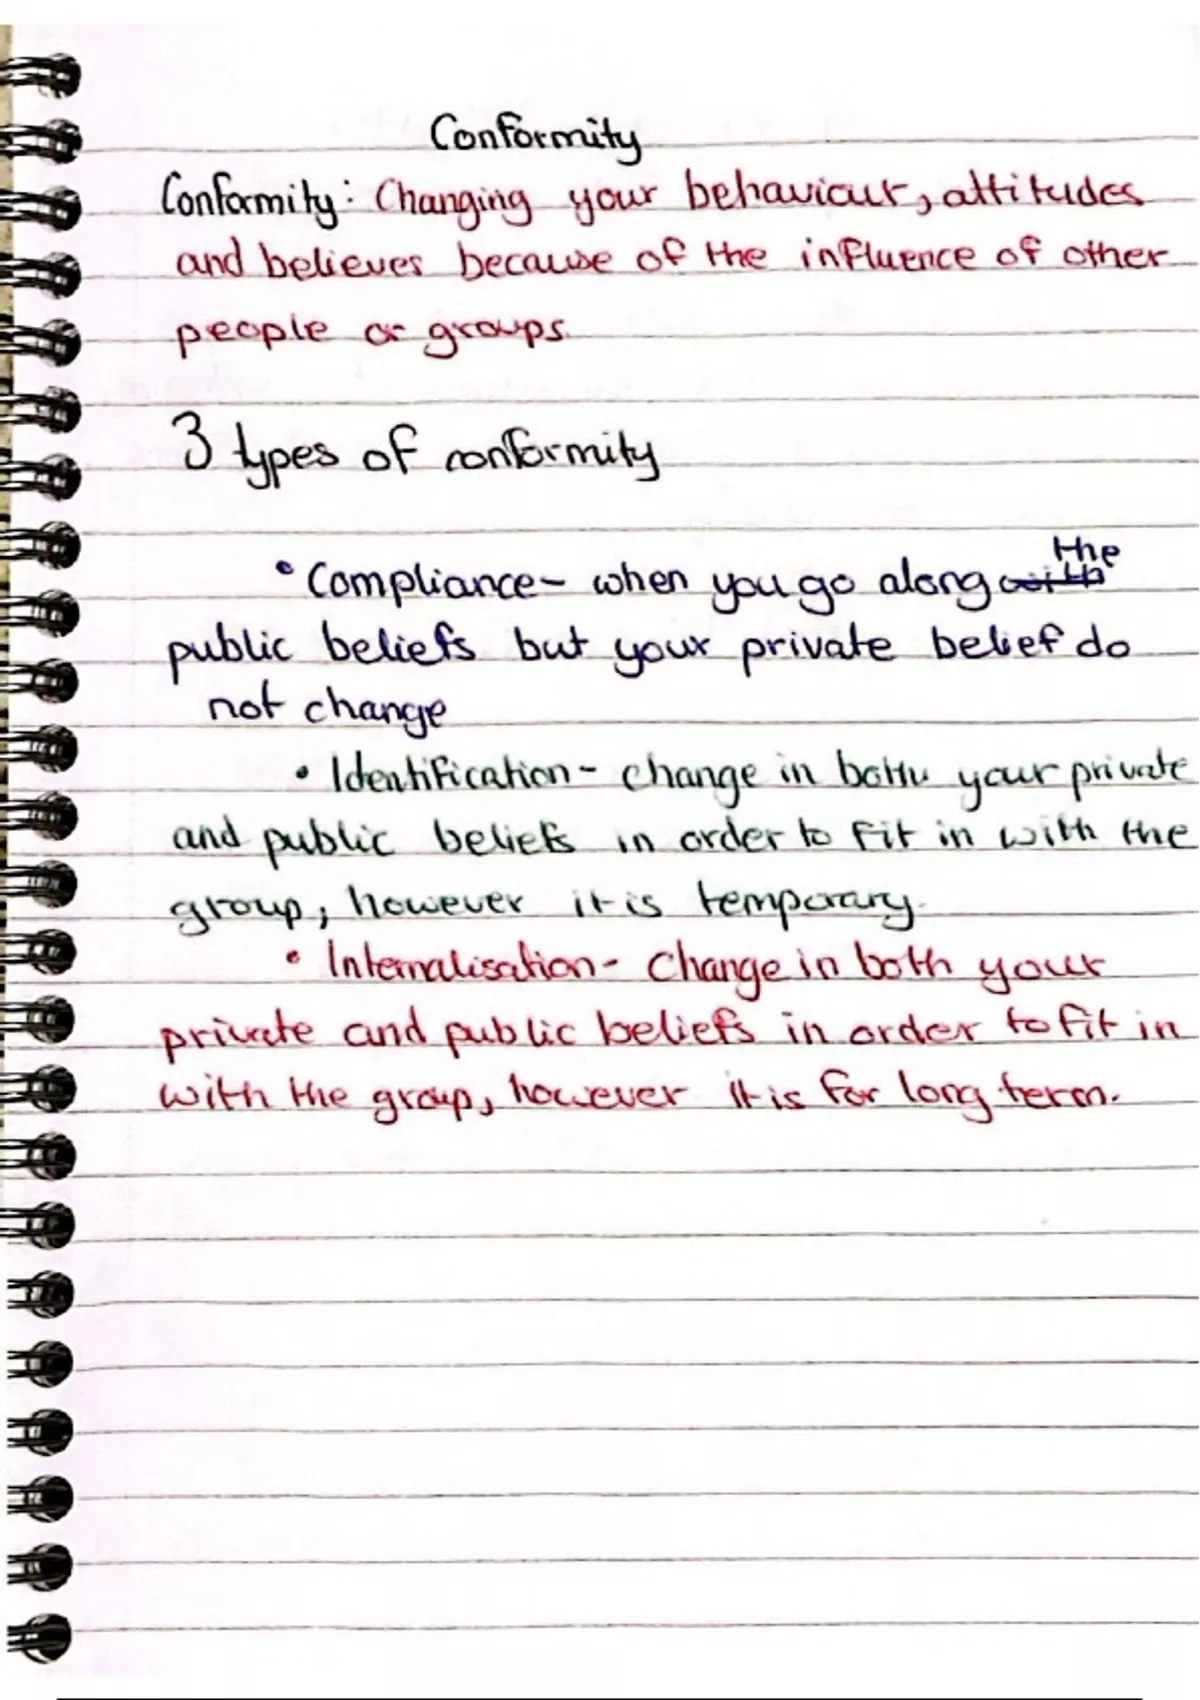 Conformity
Conformity: Changing your behaviour, attitudes
and believes because of the influence of other
people or groups.
3 types of conformity
the
• Compliance - when you go along with
public beliefs but your private belief do
not change
• Identification - change in both your private
and public beliefs in order to fit in with the
group, however it is temporary.
• Internalisation - Change in both your
private and public beliefs in order to fit in
with the group, however it is for long term.